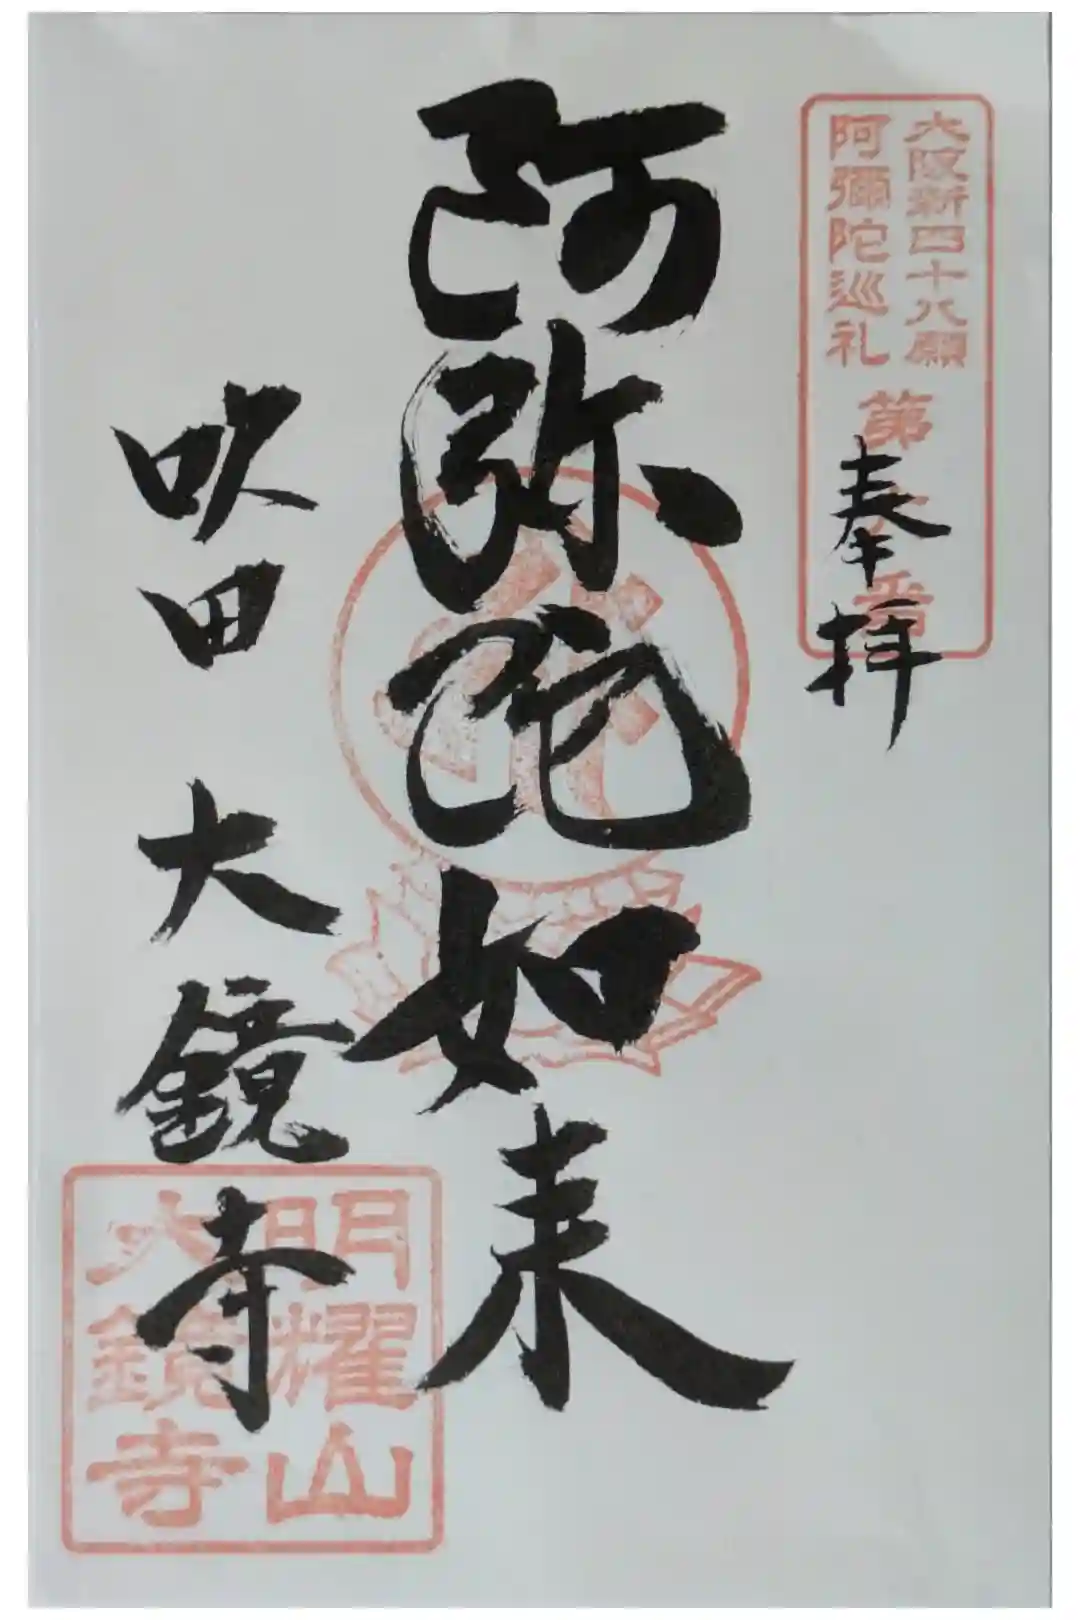 大阪新四十八願
阿彌陀巡礼
第 番
奉拝
阿弥陀如来
吹田 大鏡寺
明耀山
大鏡寺